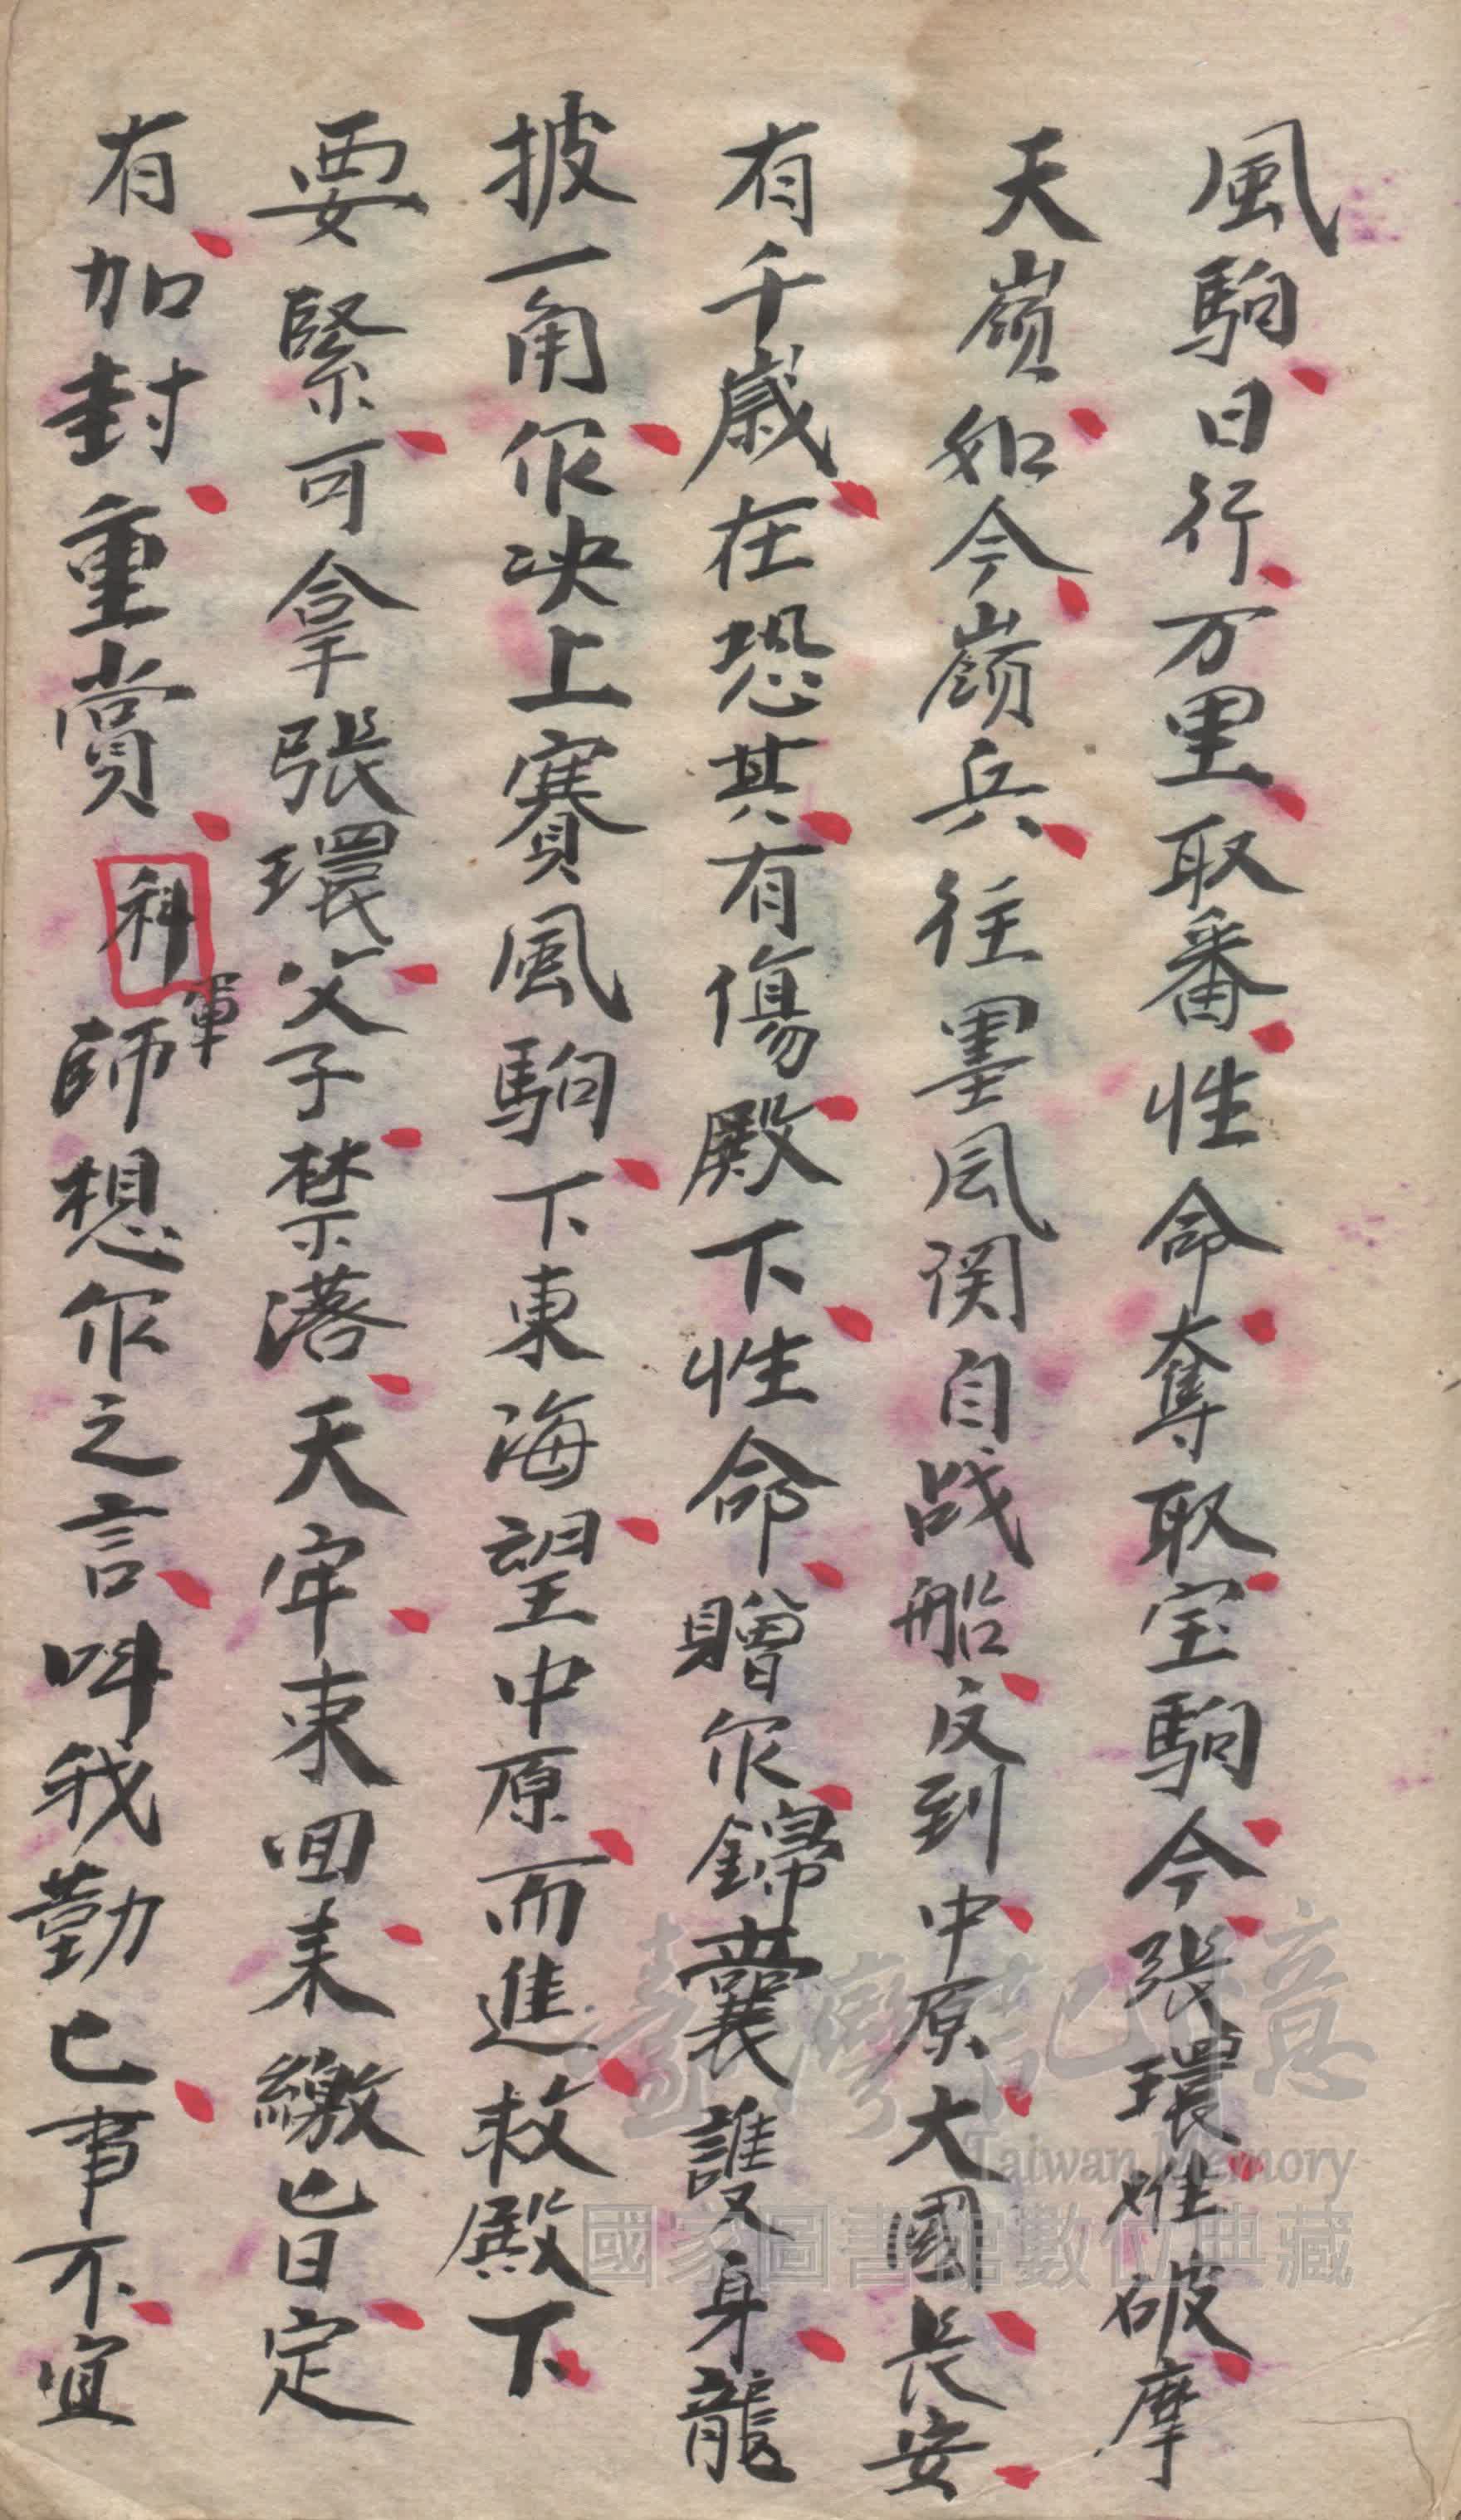 風駒日行万里取番性命奪取宝駒今張環难破摩
天嶺如今嶺兵往墨风関自战船反到中原大國長安
有千歲在恐其有傷殿下性命贈你錦囊護身龍
披一角你决上賽風駒下東海望中原而進救殿下
要緊可拿張環父子禁落天牢束回来繳旨定
有加封重賞科軍師想你之言呌我勤已事不宜
臺灣記憶
Taiwan Memory
國家圖書館數位典藏